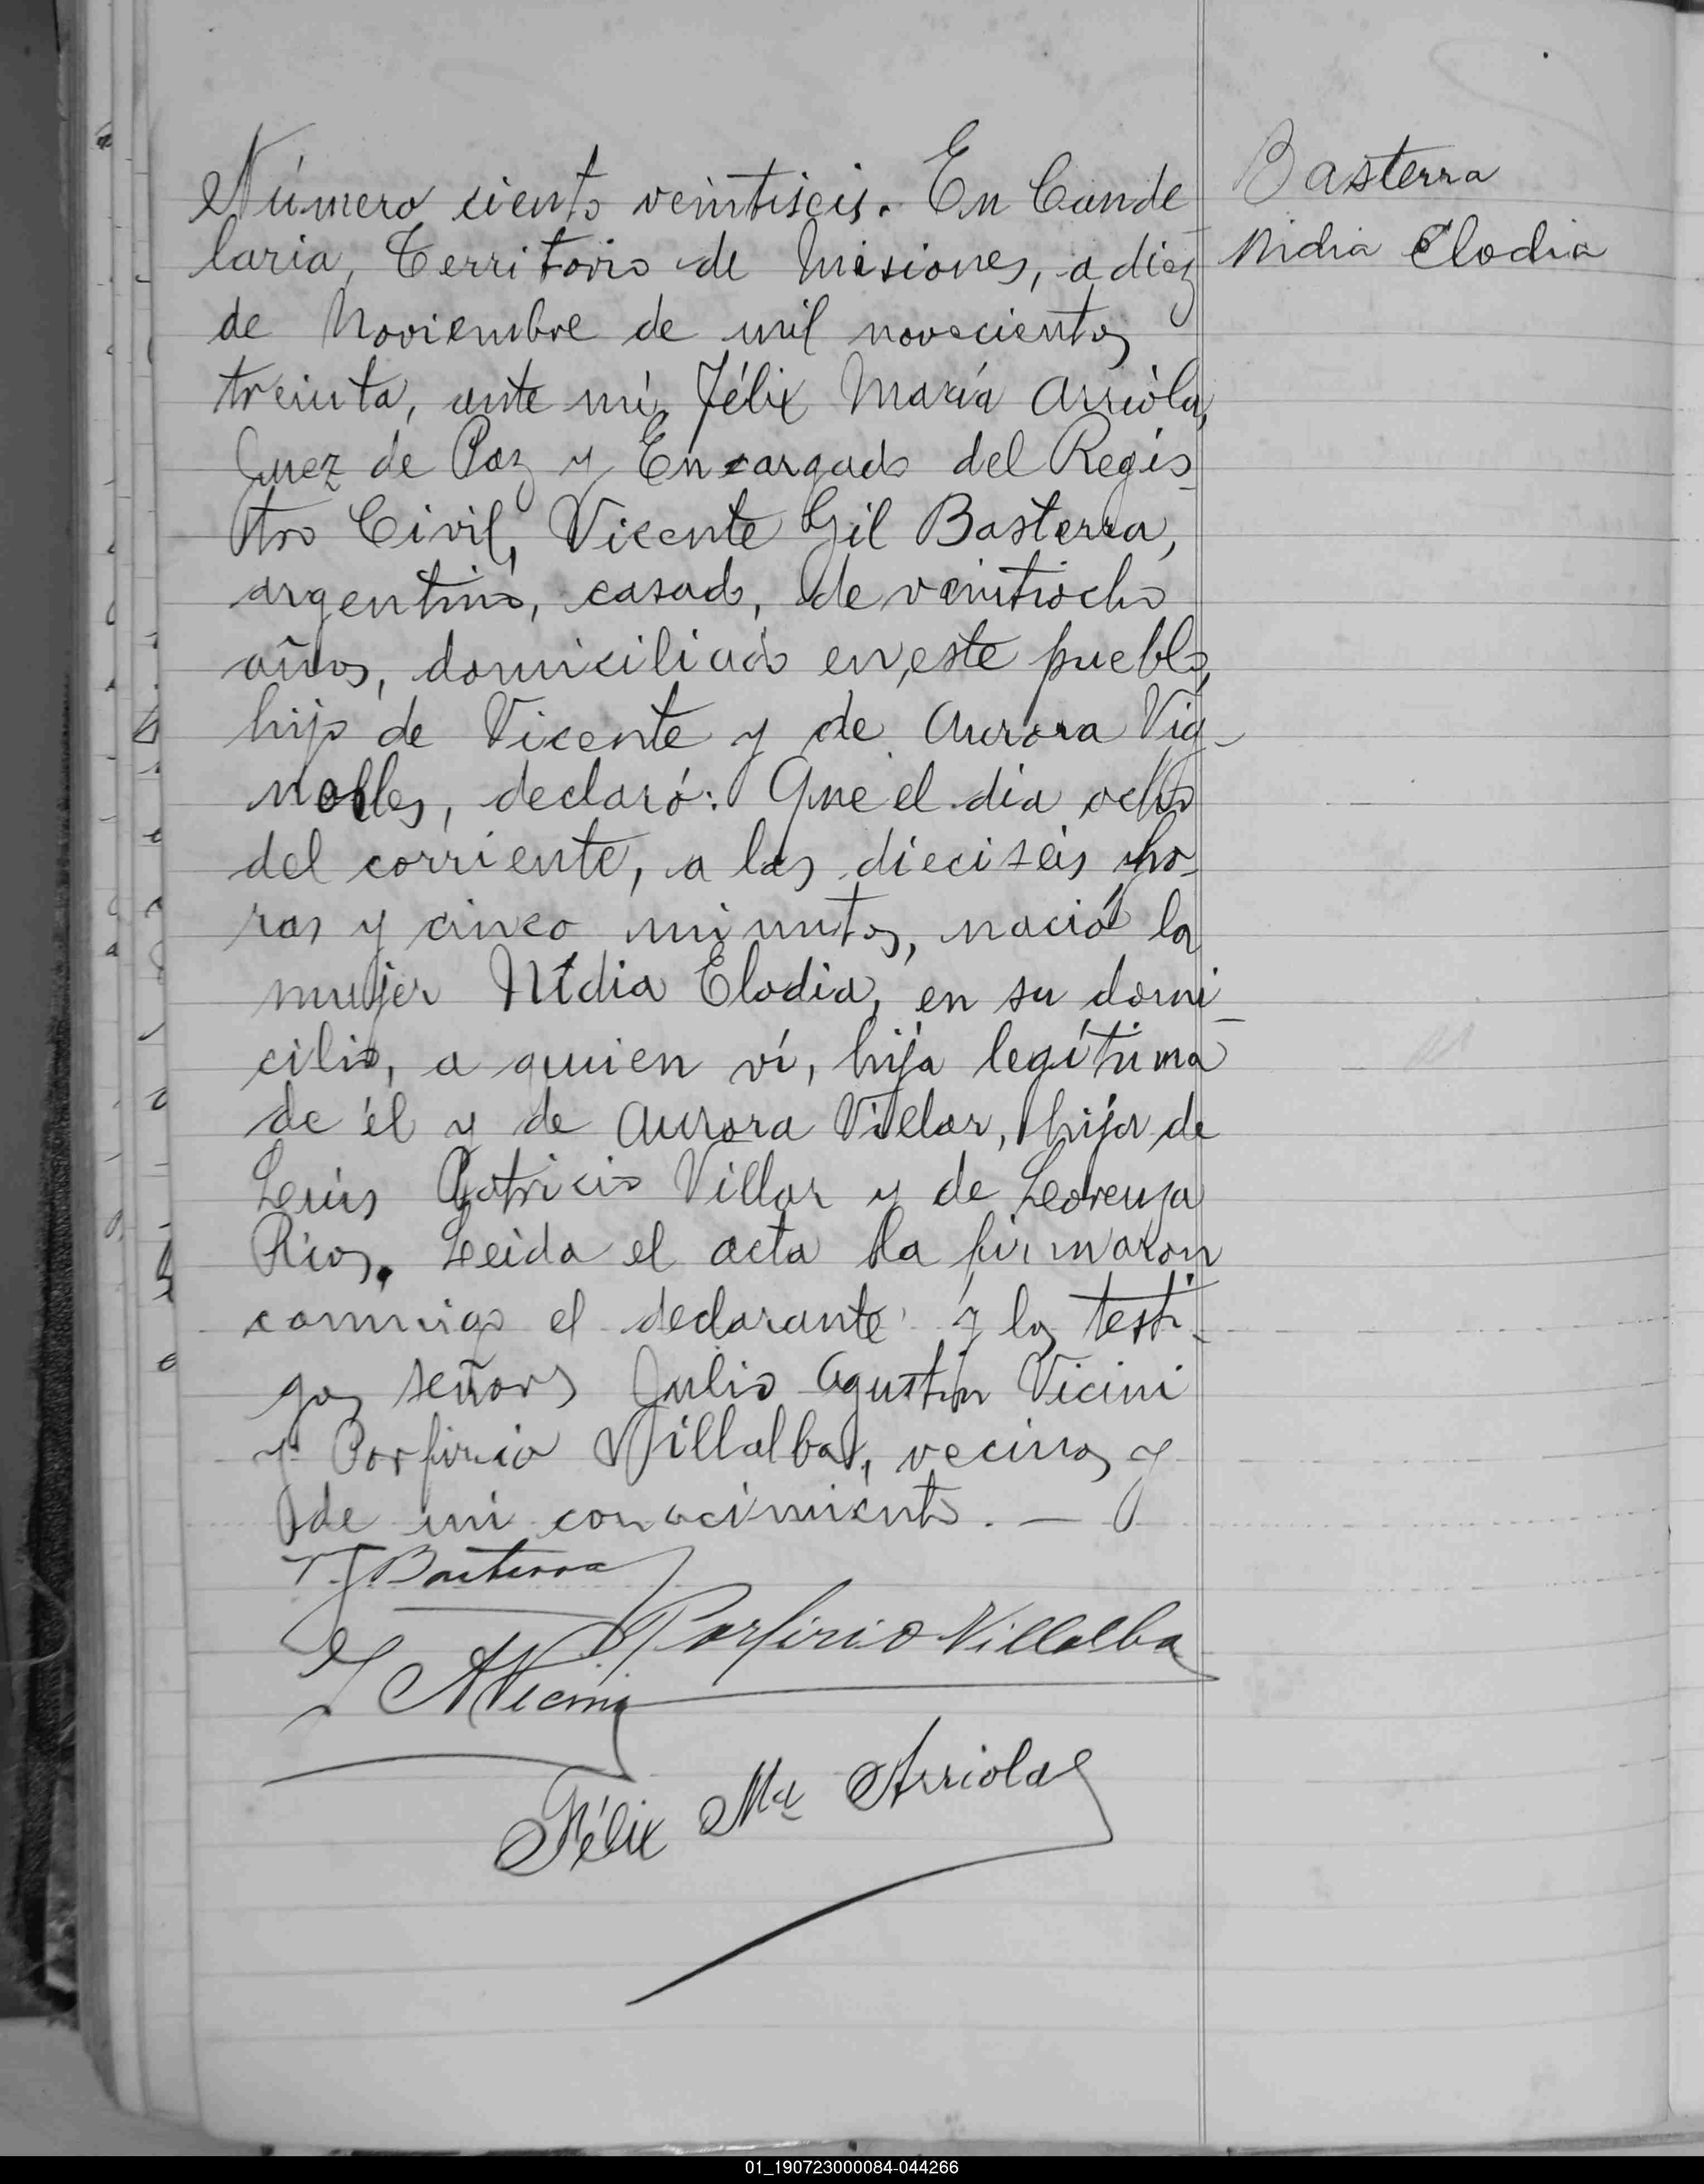 Número ciento veintiseis. En Cande
laria, Territorio de Misiones, a diez
de Noviembre de mil novecientos
treinta, ante mí, Félix María Arriola,
Juez de Paz y Encargado del Regis-
tro Civil, Vicente Gil Basterra,
argentino, casado, de veintiocho
años, domiciliado en este pueblo,
hijo de Vicente y de Aurora Vig-
nolles, declaró: Que el dia ocho
del corriente, a las dieciséis ho-
ras y cinco minutos, nació la
mujer Nidia Elodia, en su domi-
cilio, a quien ví, hija legítima
de él y de Aurora Villar, hija de
Luis Patricio Villar y de Lorenza
Ríos. Leida el acta la firmaron
conmigo el declarante y los testi-
gos señores Julio Agustín Vicini
y Porfirio Villalba, vecinos y
de mi conocimiento. —
Basterra
Nidia Elodia
V. G. Basterra
Porfirio Villalba
J A Vicini
Félix Ma Arriola
01_190723000084-044266